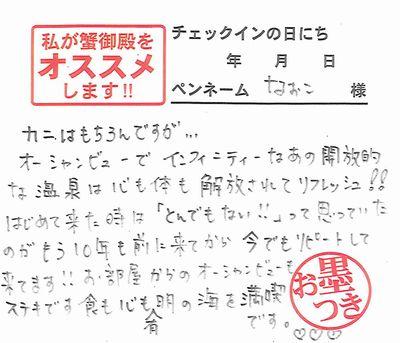 私が蟹御殿を
オススメ
します!!
チェックインの日にち
年 月 日
ペンネーム なおこ 様
カニはもちろんですが…
オーシャンビューで インフィニティーなあの開放的
な温泉は心も体も解放されてリフレッシュ!!
はじめて来た時は「とんでもない!!」って思っていた
のがもう10年も前に来てから 今でもリピートして
来てます!! お部屋からのオーシャンビューも
ステキです 食も心も有明の海を満喫
です。♡♡♡
お墨つき